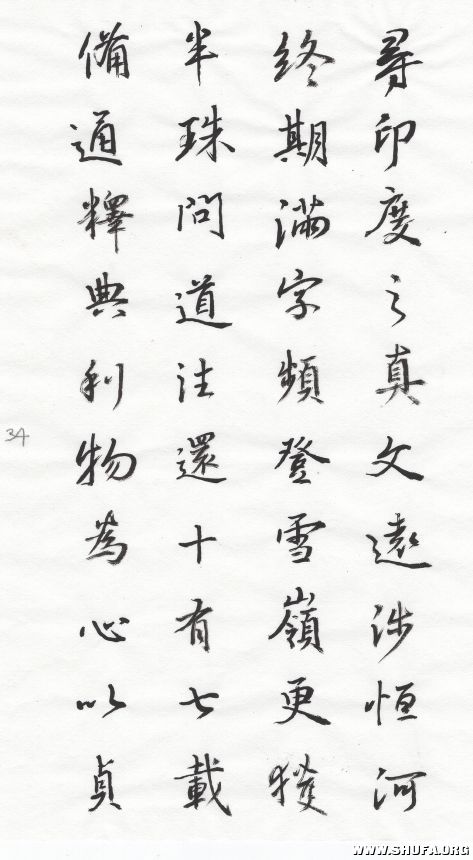 尋印度之真文遠涉恒河
終期滿字頻登雪嶺更獲
半珠問道往還十有七載
備通釋典利物為心以貞
34
WWW.SHUFA.ORG